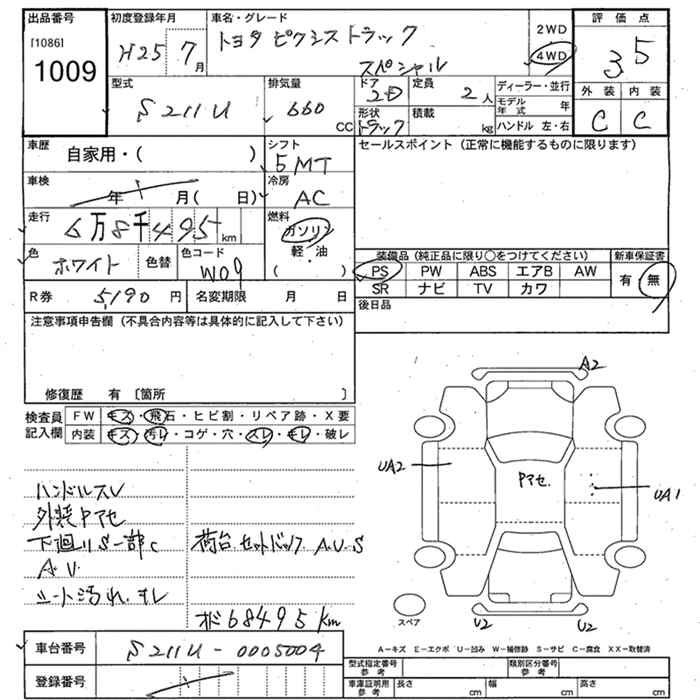 出品番号
[1086]
1009
初度登録年月
H25年7月
車名・グレード
トヨタ ピクシス トラック
スペシャル
2WD
4WD
評価点
3.5
外装 内装
C C
型式
S211U
排気量
660
CC
ドア
2D
形状
トラック
定員
2人
積載
kg
ディーラー・並行
モデル年式 年
ハンドル 左・右
車歴
自家用・( )
シフト
5MT
セールスポイント(正常に機能するものに限ります)
車検
年 月( 日)
冷房
AC
走行
6万8千495km
燃料
ガソリン
軽・油
( )
色
ホワイト
色替
色コード
W09
装備品(純正品に限り〇をつけてください)
新車保証書
PS PW ABS エアB AW
SR ナビ TV カワ
有 無
R券 5,190円
名変期限 月 日
後日品
注意事項申告欄(不具合内容等は具体的に記入して下さい)
修復歴 有〔箇所 〕
検査員
記入欄
FW キズ・飛石・ヒビ割・リペア跡・X要
内装 キズ・汚レ・コゲ・穴・スレ・キレ・破レ
ハンドルスレ
外装Pアセ
下廻りS一部C
A.U.
シート汚れ.キレ
荷台.セットバック A.U.S
68495km
A2
UA2
Pアセ.
UA1
U2
U2
スペア
A-キズ E-エクボ U-凹み W-補修跡 S-サビ C-腐食 XX-取替済
車台番号
S211U-0005004
登録番号
型式指定番号
参考
類別区分番号
参考
車庫証明用
参考
長さ cm
幅 cm
高さ cm